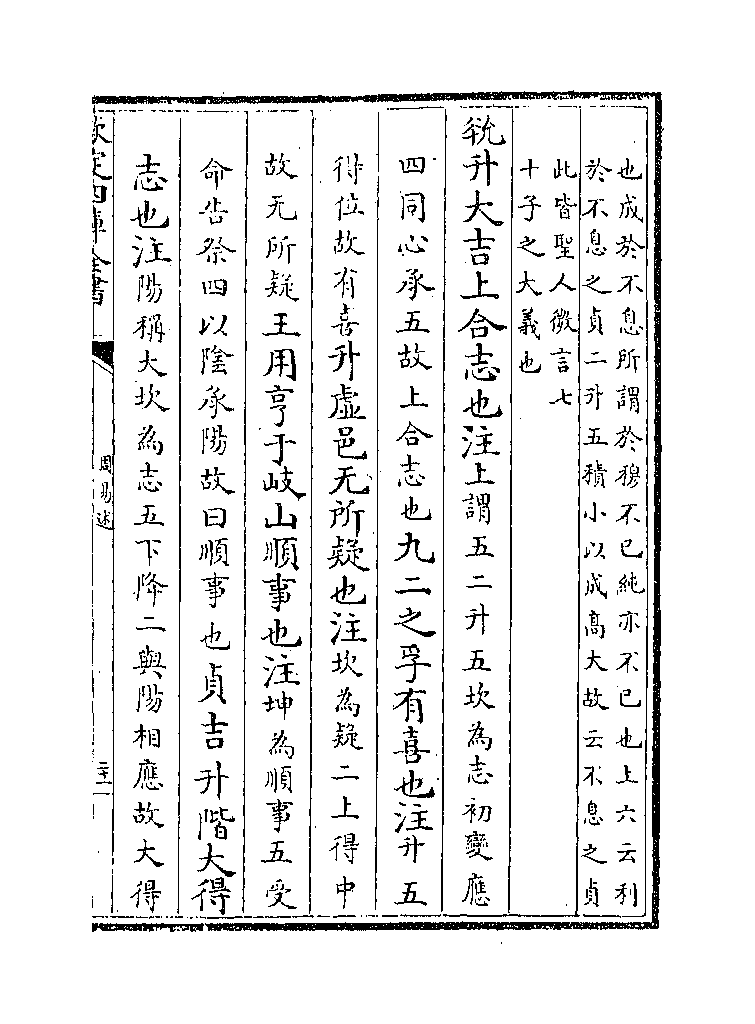 也成於不息所謂於穆不已純亦不已也上六云利
於不息之貞二升五積小以成高大故云不息之貞
此皆聖人微言七
十子之大義也
㽙升大吉上合志也注上謂五二升五坎為志初變應
四同心承五故上合志也九二之孚有喜也注升五
得位故有喜升虛邑无所疑也注坎為疑二上得中
故无所疑王用亨于岐山順事也注坤為順事五受
命告祭四以陰承陽故曰順事也貞吉升階大得
志也注陽稱大坎為志五下降二與陽相應故大得
欽定四庫全書
周易述